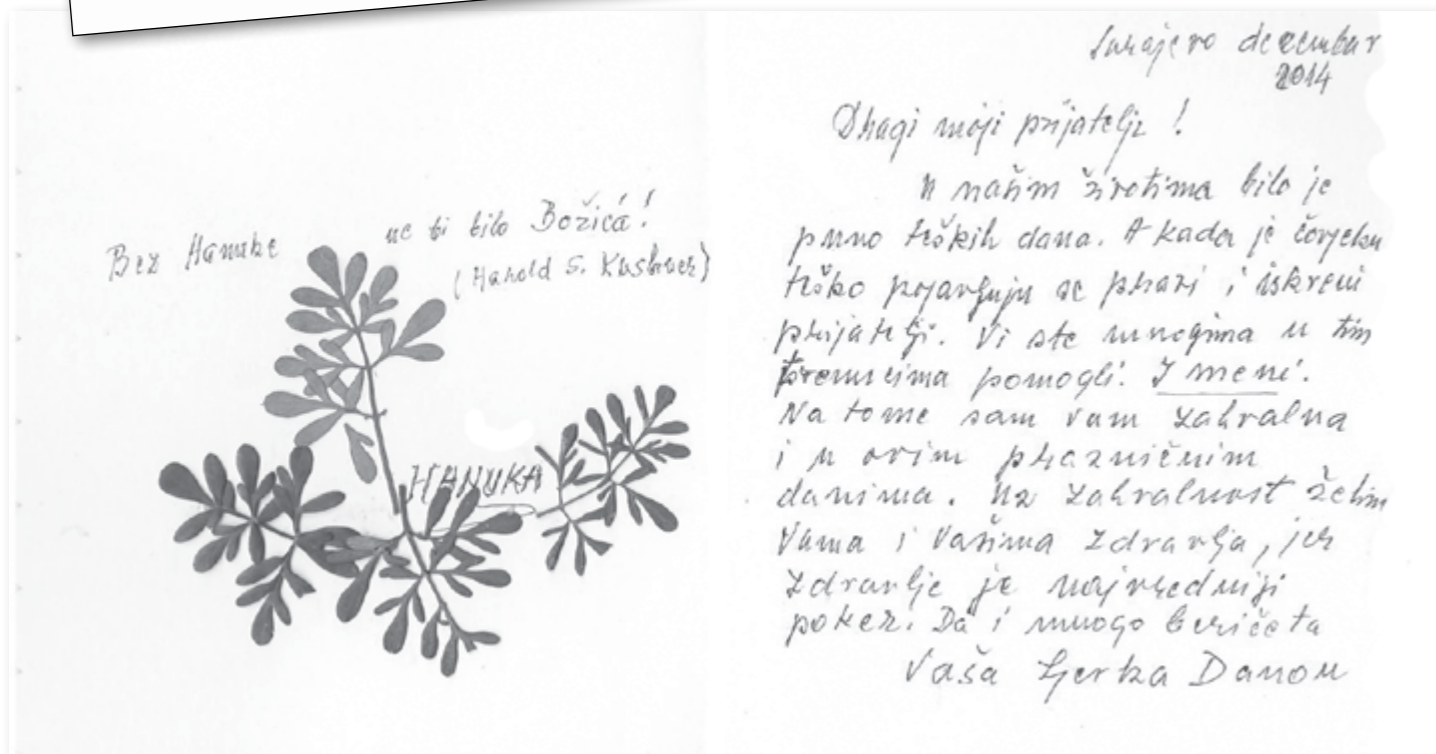 Bez Hanuke ne bi bilo Božića!
(Harold S. Kushner)
HANUKA
Sarajevo decembar
2014
Dragi moji prijatelji !
U našim životima bilo je
puno teških dana. A kada je čovjeku
teško pojavljuju se pravi i iskreni
prijatelji. Vi ste mnogima u tim
trenucima pomogli. I meni.
Na tome sam vam zahvalna
i u ovim prazničnim
danima. Uz zahvalnost želim
Vama i Vašima zdravlja, jer
zdravlje je najvredniji
poker. Da i mnogo beričeta
Vaša Ljerka Danon